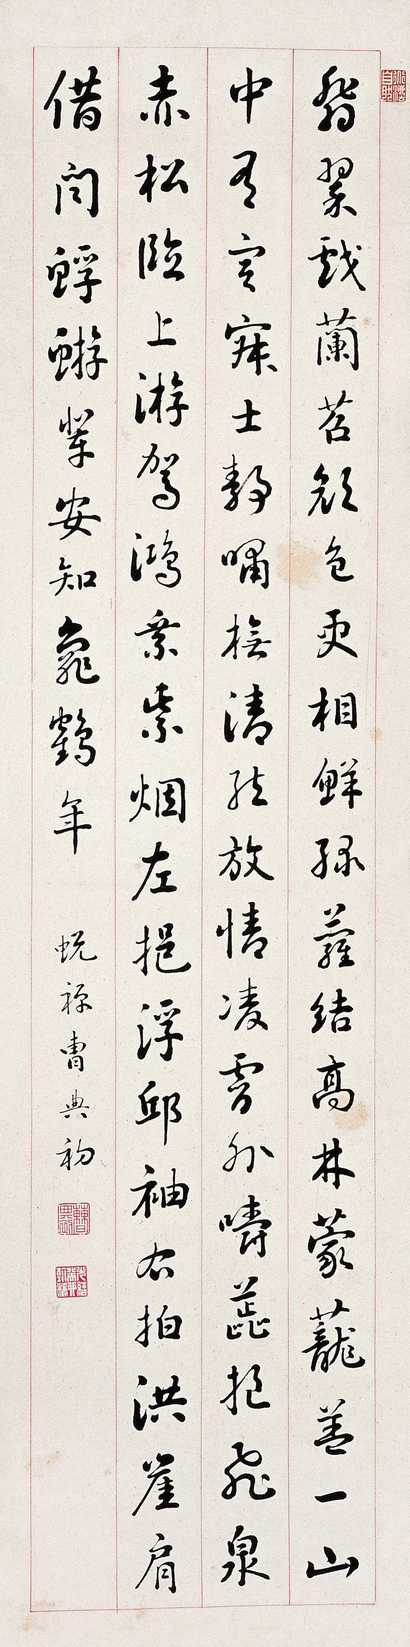 翡翠戲蘭苕顏色更相鮮綠蘿結高林蒙蘢蓋一山
中有冥寂士靜嘯撫清絃放情凌霄外嚼蕋挹飛泉
赤松臨上游駕鴻乘紫烟左挹浮邱袖右拍洪崖肩
借問蜉蝣輩安知龜鶴年
蛻 曹典初